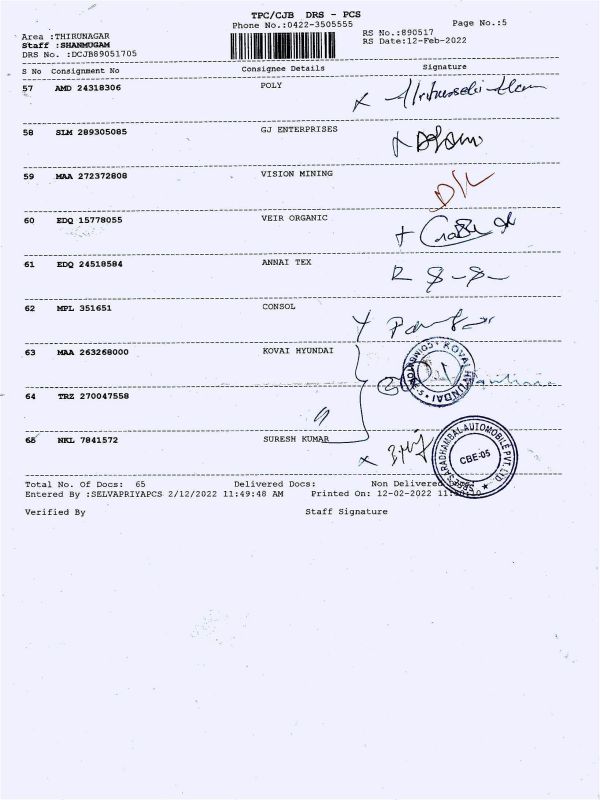 TPC/CJB DRS - PCS
Phone No.:0422-3505555 Page No.:5
Area :THIRUNAGAR RS No.:890517
Staff :SHANMUGAM RS Date:12-Feb-2022
DRS No. :DCJB89051705
S No Consignment No Consignee Details Signature
57 AMD 24318306 POLY
58 SLM 289305085 GJ ENTERPRISES
59 MAA 272372808 VISION MINING
D/L
60 EDQ 15778055 VEIR ORGANIC
61 EDQ 24518584 ANNAI TEX
62 MPL 351651 CONSOL
63 MAA 263268000 KOVAI HYUNDAI
KOVAI HYUNDAI
COIMBATORE
64 TRZ 270047558
65 NKL 7841572 SURESH KUMAR
SARADHAMBAL AUTOMOBILE PVT. LTD.
CBE-05
Total No. Of Docs: 65 Delivered Docs: Non Delivered
Entered By :SELVAPRIYAPCS 2/12/2022 11:49:48 AM Printed On: 12-02-2022
Verified By Staff Signature